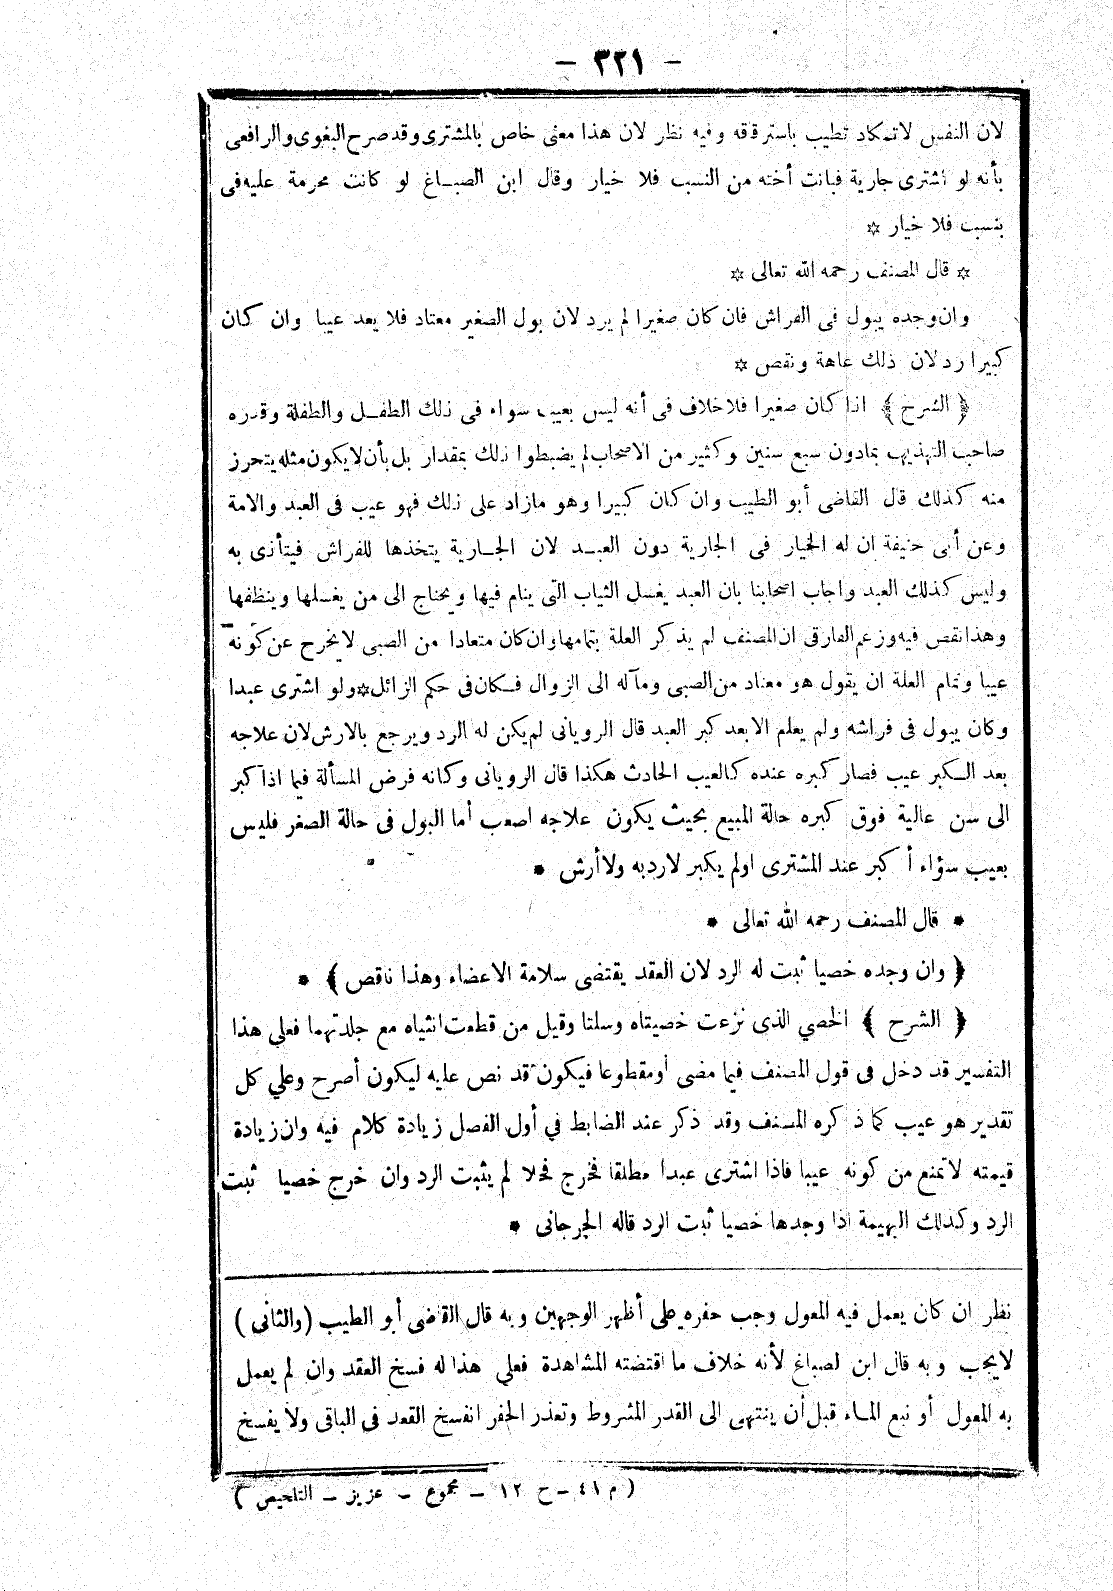 – ٣٢١ –
لان النفس لاتكاد تطيب باسترقاقه وفيه نظر لان هذا معنى خاص بالمشترى وقد صرح البغوى والرافعى
بأنه لو اشترى جارية فبانت أخته من النسب فلا خيار وقال ابن الصباغ لو كانت محرمة عليه فى
بنسب فلا خيار ☆
☆ قال المصنف رحمه الله تعالى ☆
وان وجده يبول فى الفراش فان كان صغيرا لم يرد لان بول الصغير معتاد فلا يعد عيبا وان كان
كبيرا رد لان ذلك عاهة ونقص ☆
﴿ الشرح ﴾ اذا كان صغيرا فلا خلاف فى أنه ليس بعيب سواء فى ذلك الطفل والطفلة وقدره
صاحب التهذيب بمادون سبع سنين وكثير من الاصحاب لم يضبطوا ذلك بمقدار بل بأن لا يكون مثله يتحرز
منه كذلك قال القاضى أبو الطيب وان كان كبيرا وهو مازاد على ذلك فهو عيب فى العبد والامة
وعن أبى حنيفة ان له الخيار فى الجارية دون العبد لان الجارية يتخذها للفراش فيتأذى به
وليس كذلك العبد واجاب اصحابنا بان العبد يغسل الثياب التى ينام فيها ويحتاج الى من يغسلها وينظفها
وهذا نقص فيه وزعم الفارقى ان المصنف لم يذكر العلة بتمامها وان كان متعادا من الصبى لا يخرج عن كونه
عيبا وتمام العلة ان يقول هو معتاد من الصبى ومآله الى الزوال فكان فى حكم الزائل ☆ ولو اشترى عبدا
وكان يبول فى فراشه ولم يعلم الا بعد كبر العبد قال الرويانى لم يكن له الرد ويرجع بالارش لان علاجه
بعد الكبر عيب فصار كبره عنده كالعيب الحادث هكذا قال الرويانى وكانه فرض المسألة فيما اذا كبر
الى سن عالية فوق كبره حالة المبيع بحيث يكون علاجه اصعب أما البول فى حالة الصغر فليس
بعيب سؤاء أ كبر عند المشترى اولم يكبر لاردبه ولا أرش *
* قال المصنف رحمه الله تعالى *
﴿ وان وجده خصيا ثبت له الرد لان العقد يقتضى سلامة الاعضاء وهذا ناقص ﴾ *
﴿ الشرح ﴾ الخصي الذى نزعت خصيتاه وسلتا وقيل من قطعت انثياه مع جلدتهما فعلى هذا
التفسير قد دخل فى قول المصنف فيما مضى أومقطوعا فيكون قد نص عليه ليكون أصرح وعلي كل
تقدير هو عيب كما ذكره المصنف وقد ذكر عند الضابط في أول الفصل زيادة كلام فيه وان زيادة
قيمته لاتمنع من كونه عيبا فاذا اشترى عبدا مطلقا فخرج فحلا لم يثبت الرد وان خرج خصيا ثبت
الرد وكذلك البهيمة اذا وجدها خصيا ثبت الرد قاله الجرجانى *
نظر ان كان يعمل فيه المعول وجب حفره على أظهر الوجهين وبه قال القاضى أبو الطيب (والثانى)
لايجب وبه قال ابن لصباغ لأنه خلاف ما اقتضته المشاهدة فعلي هذا له فسخ العقد وان لم يعمل
به المعول أو نبع الماء قبل أن ينتهى الى القدر المشروط وتعذر الحفر انفسخ القعد فى الباقى ولا يفسخ
( م ٤١ – ح ١٢ – مجموع – عزيز – التلخيص )